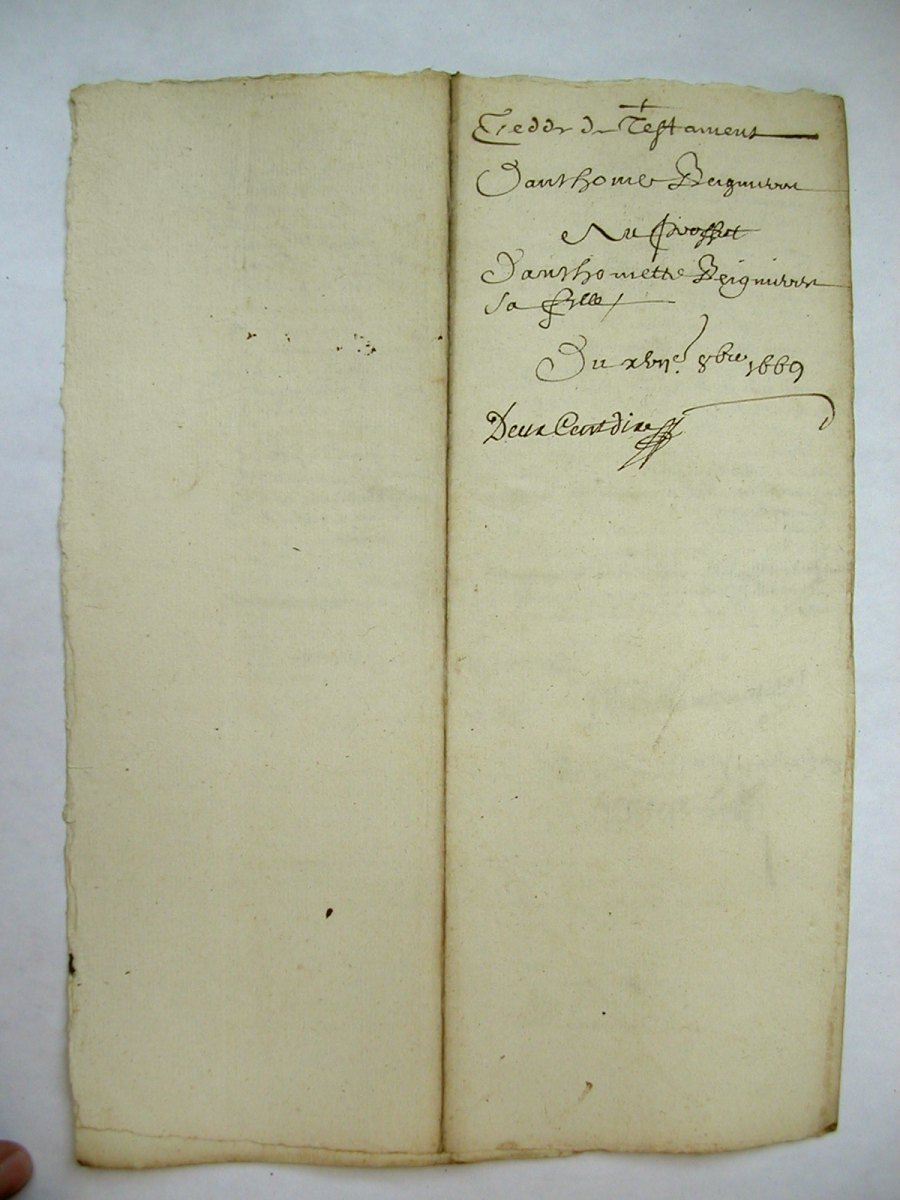 +
Cedde de Testament
Danthome Beignierre
Au proffict
Danthomette Beignierre
Sa fille /
Du xvii.e 8bre 1669
Deux Cent dix